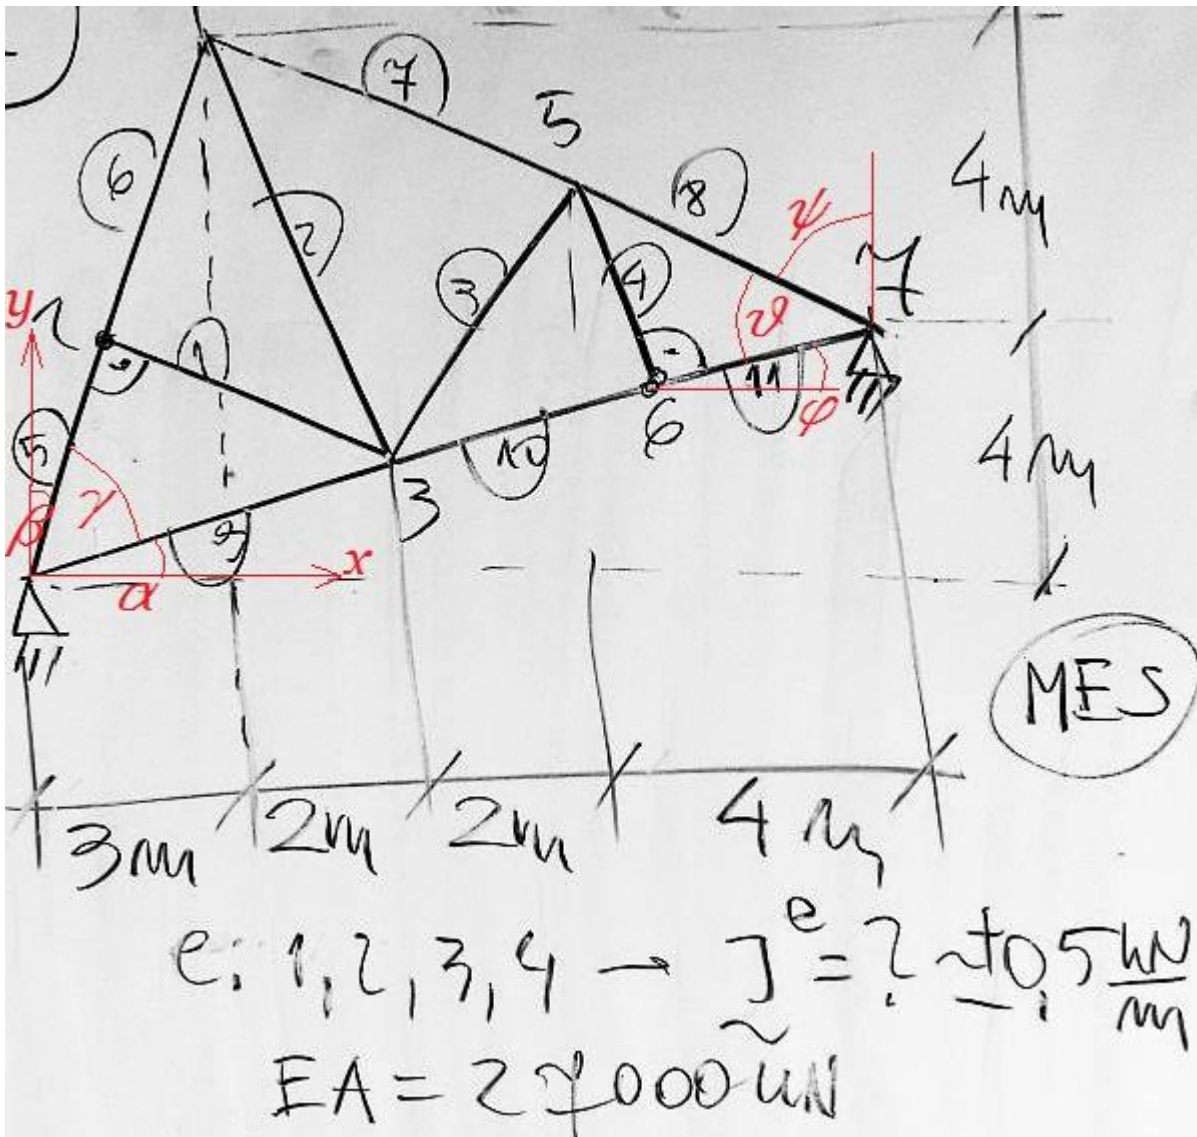 7
5
4m
6
2
8
ψ
7
3
4
ϑ
y
2
1
11
φ
6
5
10
4m
β
γ
3
9
x
α
MES
3m
2m
2m
4m
e: 1, 2, 3, 4 → J^e = ? ~ ±0,5 kN/m
EA = 27000 kN